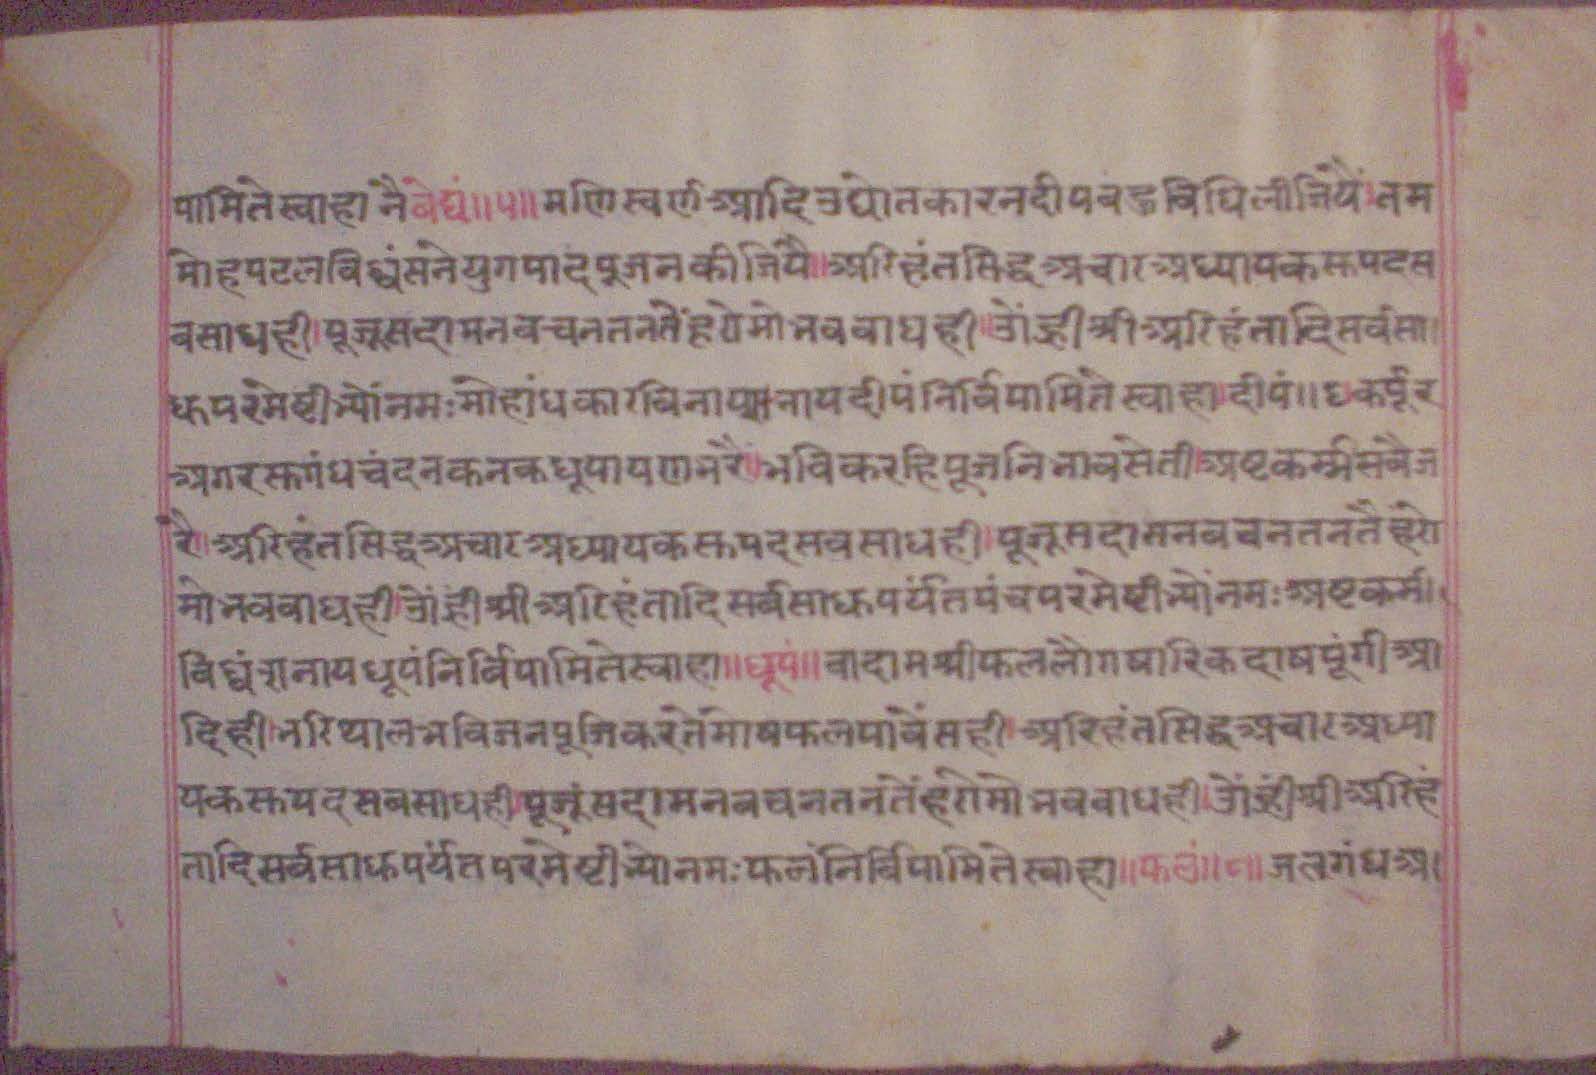 पामिते स्वाहा नैवेद्यं ॥५॥ मणि स्वर्ण आदि उद्योत कारन दीप बहु विधि लीजियै। तम
मोह पटल विध्वंसने युग पाद पूजन कीजियै॥ अरिहंत सिद्ध अचार अध्यायक रू पद स
व साध ही। पूजू सदा मन वचन तन तैं हरो मो भव बाध ही॥ ओं ह्री श्री अरिहंतादि सर्व सा।
धू परमेष्टीभ्यों नमः मोहांधकार विनाशनाय दीपं निर्विपामिते स्वाहा। दीपं॥६ कर्पूर
अगर रू गंध चंदन कनक धूपायण भरै। भवि करहि पूजनि भाव सेती अष्ट कर्म्म सबै ज
रै। अरिहंत सिद्ध अचार अध्यायक रू पद सव साध ही। पूजू सदा मन वचन तन तै हरो
मो भव बाध ही। ओं ह्री श्री अरिहंतादि सर्व साधू पर्यंत पंच परमेष्टीभ्यों नमः अष्ट कर्म।
विध्वंशनाय धूपं निर्विपामिते स्वाहा॥ धूपं॥ वादाम श्रीफल लौग षारिक दाष पूंगी आ
दि ही। भरि थाल भविजन पूजि करतें मोष फल पावें सही। अरिहंत सिद्ध अचार अध्या
यक रू पद सव साध ही। पूजूं सदा मन वचन तन तें हरो मो भव बाध ही। ओं ह्रीं श्री अरिहं
तादि सर्व साधू पर्यंत परमेष्टीभ्यो नमः फलं निर्विपामिते स्वाहा॥ फलं॥८॥ जल गंध अ।